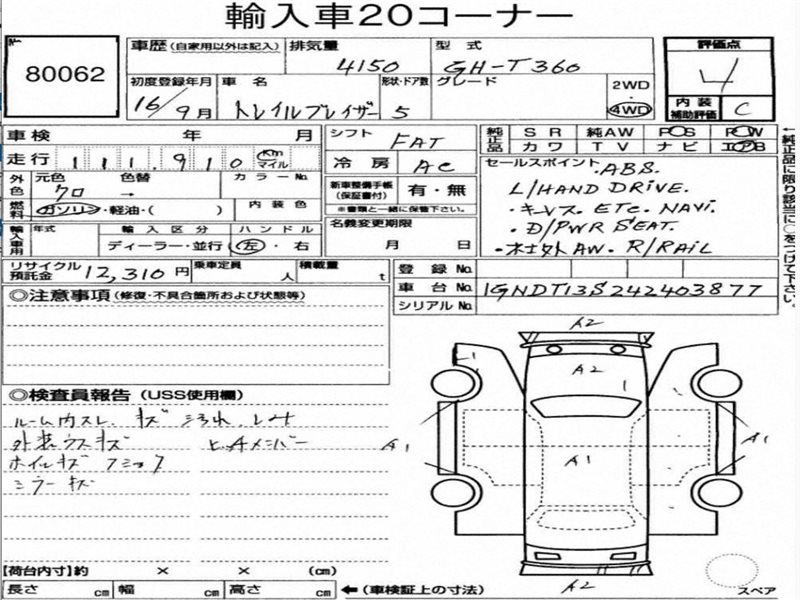 輸入車20コーナー
No.
80062
車歴(自家用以外は記入) 排気量 4150 型式 GH-T360
評価点 4
内装補助評価 C
初度登録年月 16/9月 車名 トレイルブレイザー 形状・ドア数 5 グレード 2WD・4WD
車検 年 月
シフト FAT
純正品 SR 純AW PS PW
カワ TV ナビ エアB
走行 111,910 Km マイル
冷房 AC
セールスポイント .ABS.
L/HAND DRIVE.
・キーレス ETC. NAVI.
・D/PWR SEAT.
・社外AW. R/RAIL
外色 元色 クロ 色替 → カラーNo.
新車整備手帳(保証書付) 有・無
※書類と一緒に保管下さい。
燃料 ガソリン・軽油・( ) 内装色
名義変更期限 月 日
輸入車用 年式 輸入区分 ディーラー・並行 ハンドル 左・右
リサイクル預託金 12,310円 乗車定員 人 積載量 t
登録No.
車台No. 1GNDT13S242403877
シリアルNo.
←純正品に限り該当に○をつけて下さい。
◎注意事項(修復・不具合個所および状態等)
◎検査員報告(USS使用欄)
ルーム内スレ. キズ 汚れ.
外装ウスキズ
ホイルキズ
ミラーキズ
A2
A2
1
A1
A1
A1
A2
【荷台内寸】約 × × (cm)
長さ cm 幅 cm 高さ cm ←(車検証上の寸法)
スペア